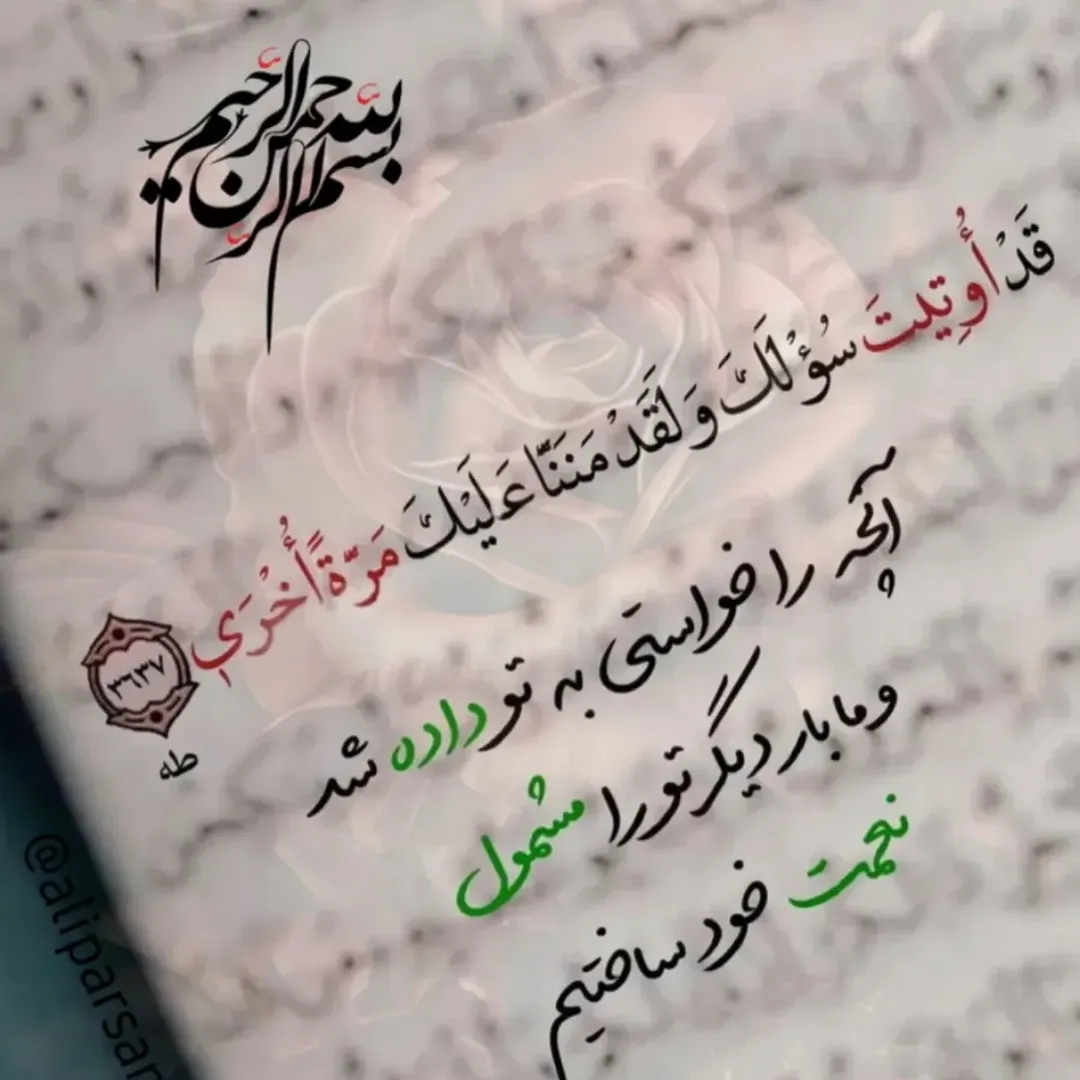 بسم الله الرحمن الرحیم
قَدْ أُوتِيتَ سُؤْلَكَ وَلَقَدْ مَنَنَّا عَلَيْكَ مَرَّةً أُخْرَي
٣٦،٣٧
طه
آنچه را خواستی به تو داده شد
و ما بار دیگر تو را مشمول
نعمت خود ساختیم
@aliparsan